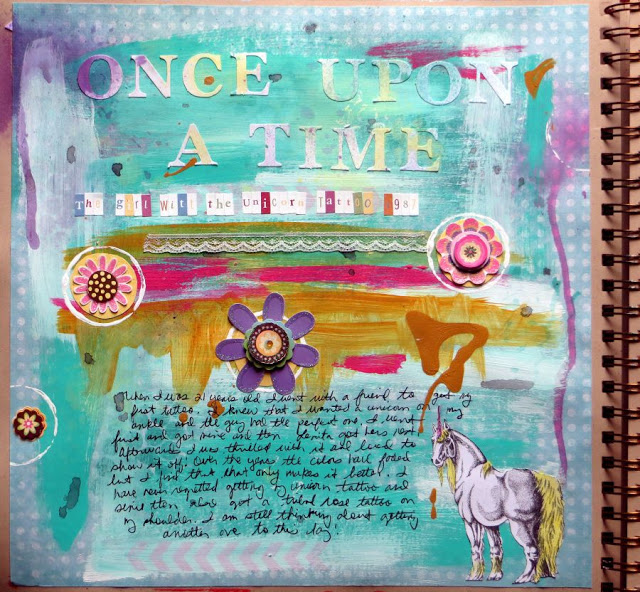 ONCE UPON
A TIME
The girl with the Unicorn Tattoo 198
When I was 21 years old I went with a friend to get my
first tattoo. I knew that I wanted a unicorn on my
ankle and the guy had the perfect one. I went
first and got mine and then got hers next.
Afterwards I was thrilled with it and liked to
show it off! Over the years the colors have faded
but I find that that only makes it better. I
have never regretted getting my unicorn tattoo and
since then have got a tribal rose tattoo on
my shoulder. I am still thinking about getting
another one to this day!